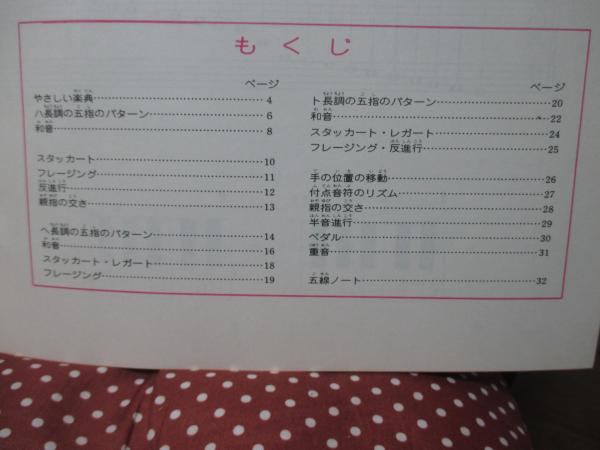 もくじ
ページ
やさしい楽典 4
ハ長調の五指のパターン 6
和音 8
スタッカート 10
フレージング 11
反進行 12
親指の交さ 13
ヘ長調の五指のパターン 14
和音 16
スタッカート・レガート 18
フレージング 19
ページ
ト長調の五指のパターン 20
和音 22
スタッカート・レガート 24
フレージング・反進行 25
手の位置の移動 26
付点音符のリズム 27
親指の交さ 28
半音進行 29
ペダル 30
重音 31
五線ノート 32